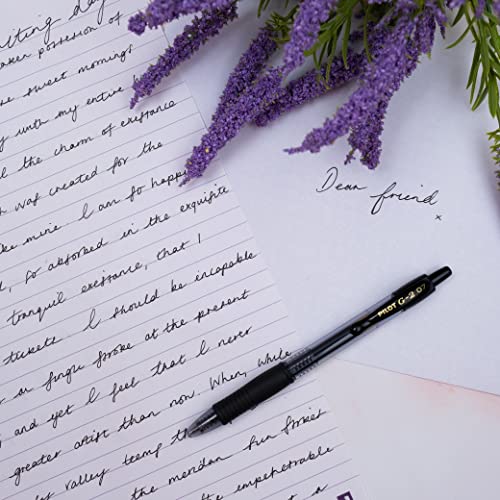 alting day
aken possession of
se sweet mornings
y with my entire
l the charm of existance
h was created for the
ke mine. I am so happ
d, so absorbed in the exquisite
tranquil existance, that I
tickets I should be incapable
or single stroke at the present
and yet I feel that I never
greater artist than now. When, while
valley teems
the meridan sun strikes
the impenetrable
a
Dear friend
x
PILOT G-2 07